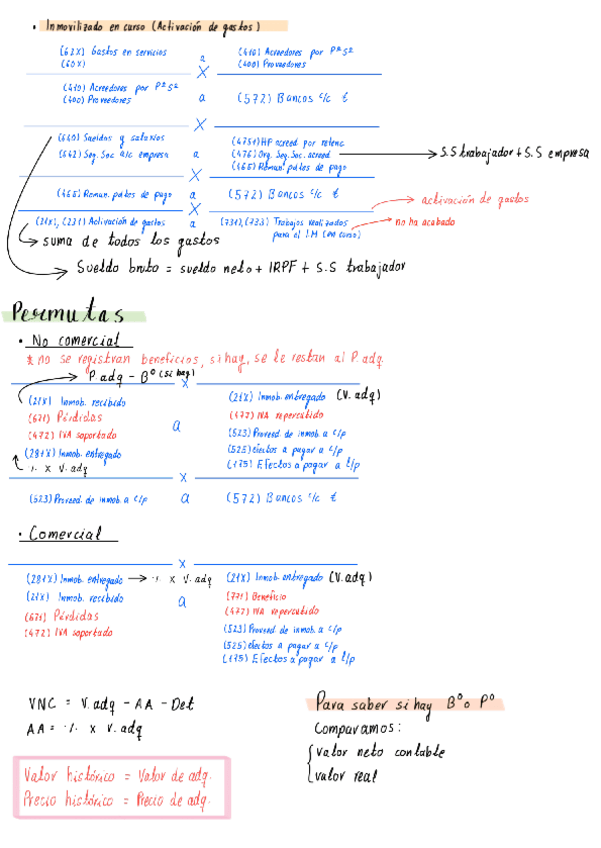 • Inmovilizado en curso (Activación de gastos)
(62X) Gastos en servicios a (410) Acreedores por P°S°
(60X) (400) Proveedores
X
(410) Acreedores por P°S° a (572) Bancos c/c €
(400) Proveedores
X
(640) Sueldos y salarios (4751) HP acreed por retenc
(642) Seg. Soc a/c empresa a (476) Org. Seg. Soc. acreed → S.S trabajador + S.S empresa
(465) Remun. ptes de pago
X
(465) Remun. ptes de pago a (572) Bancos c/c €
X
activación de gastos
(21X), (231) Activación de gastos a (731), (733) Trabajos realizados
para el I.M (en curso) no ha acabado
→ suma de todos los gastos
→ Sueldo bruto = sueldo neto + IRPF + S.S trabajador
Permutas
• No comercial
* no se registran beneficios, si hay, se le restan al P. adq.
P. adq - B° (si hay)
X
(21X) Inmob. recibido (21X) Inmob. entregado (V. adq)
(671) Pérdidas (477) IVA repercutido
(472) IVA soportado a (523) Proveed de inmob. a c/p
(281X) Inmob. entregado (525) efectos a pagar a c/p
% x V. adq (175) Efectos a pagar a l/p
X
(523) Proveed. de inmob a c/p a (572) Bancos c/c €
• Comercial
X
(281X) Inmob. entregado → % x V. adq (21X) Inmob. entregado (V. adq)
(21X) Inmob. recibido a (771) Beneficio
(671) Pérdidas (477) IVA repercutido
(472) IVA soportado (523) Proveed de inmob. a c/p
(525) efectos a pagar a c/p
(175) Efectos a pagar a l/p
VNC = V. adq - AA - Det
AA = % x V. adq
Valor histórico = Valor de adq.
Precio histórico = Precio de adq.
Para saber si hay B° o P°
Comparamos:
valor neto contable
valor real